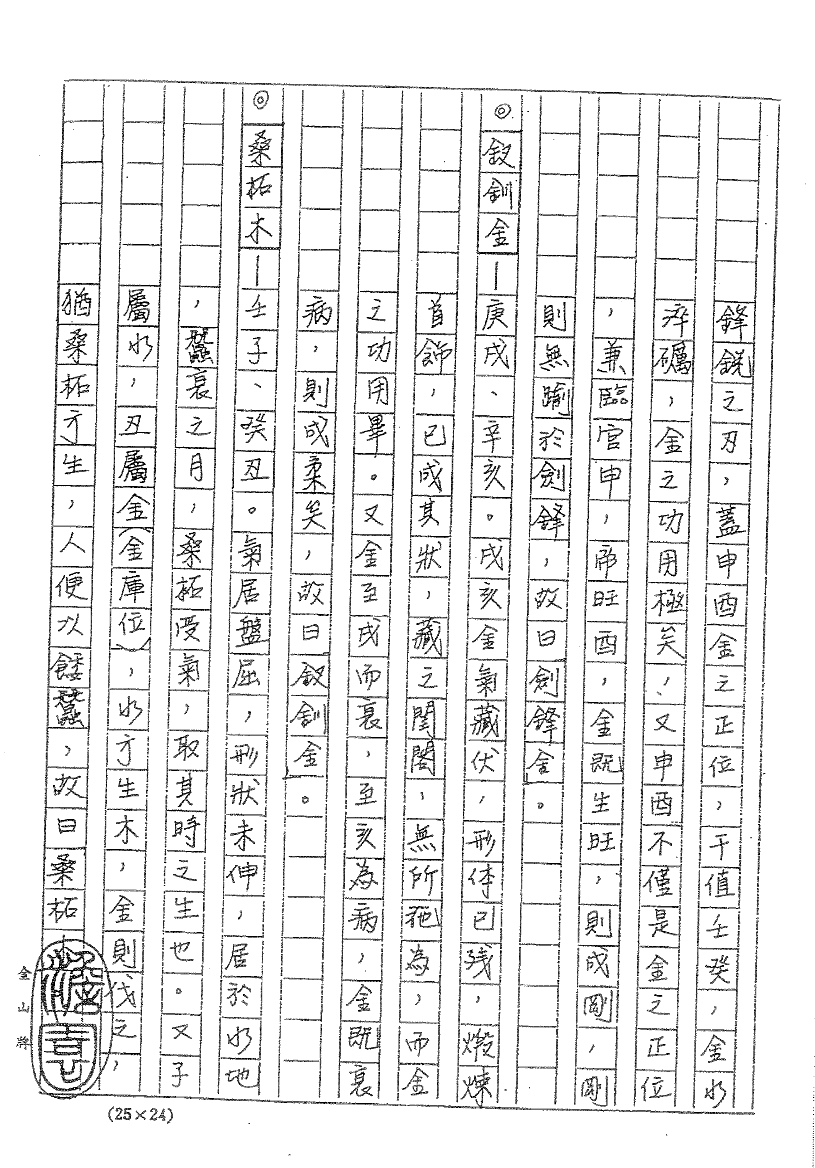 鋒銳之刃，蓋申酉金之正位，干值壬癸，金水
淬礪，金之功用極矣！又申酉不僅是金之正位
，兼臨官申，帝旺酉，金既生旺，則成剛，剛
則無踰於劍鋒，故曰劍鋒金。
◎釵釧金—庚戌、辛亥。戌亥金氣藏伏，形体已残，煅煉
首飾，已成其狀，藏之閨閣，無所施為，而金
之功用畢。又金至戌而衰，至亥為病，金既衰
病，則成柔矣，故曰釵釧金。
◎桑柘木—壬子、癸丑。氣居盤屈，形狀未伸，居於水地
，蠶衰之月，桑柘受氣，取其時之生也。又子
屬水，丑屬金（金庫位），水方生木，金則伐之，
猶桑柘方生，人便以餧蠶，故曰桑柘
金山牌
(25×24)